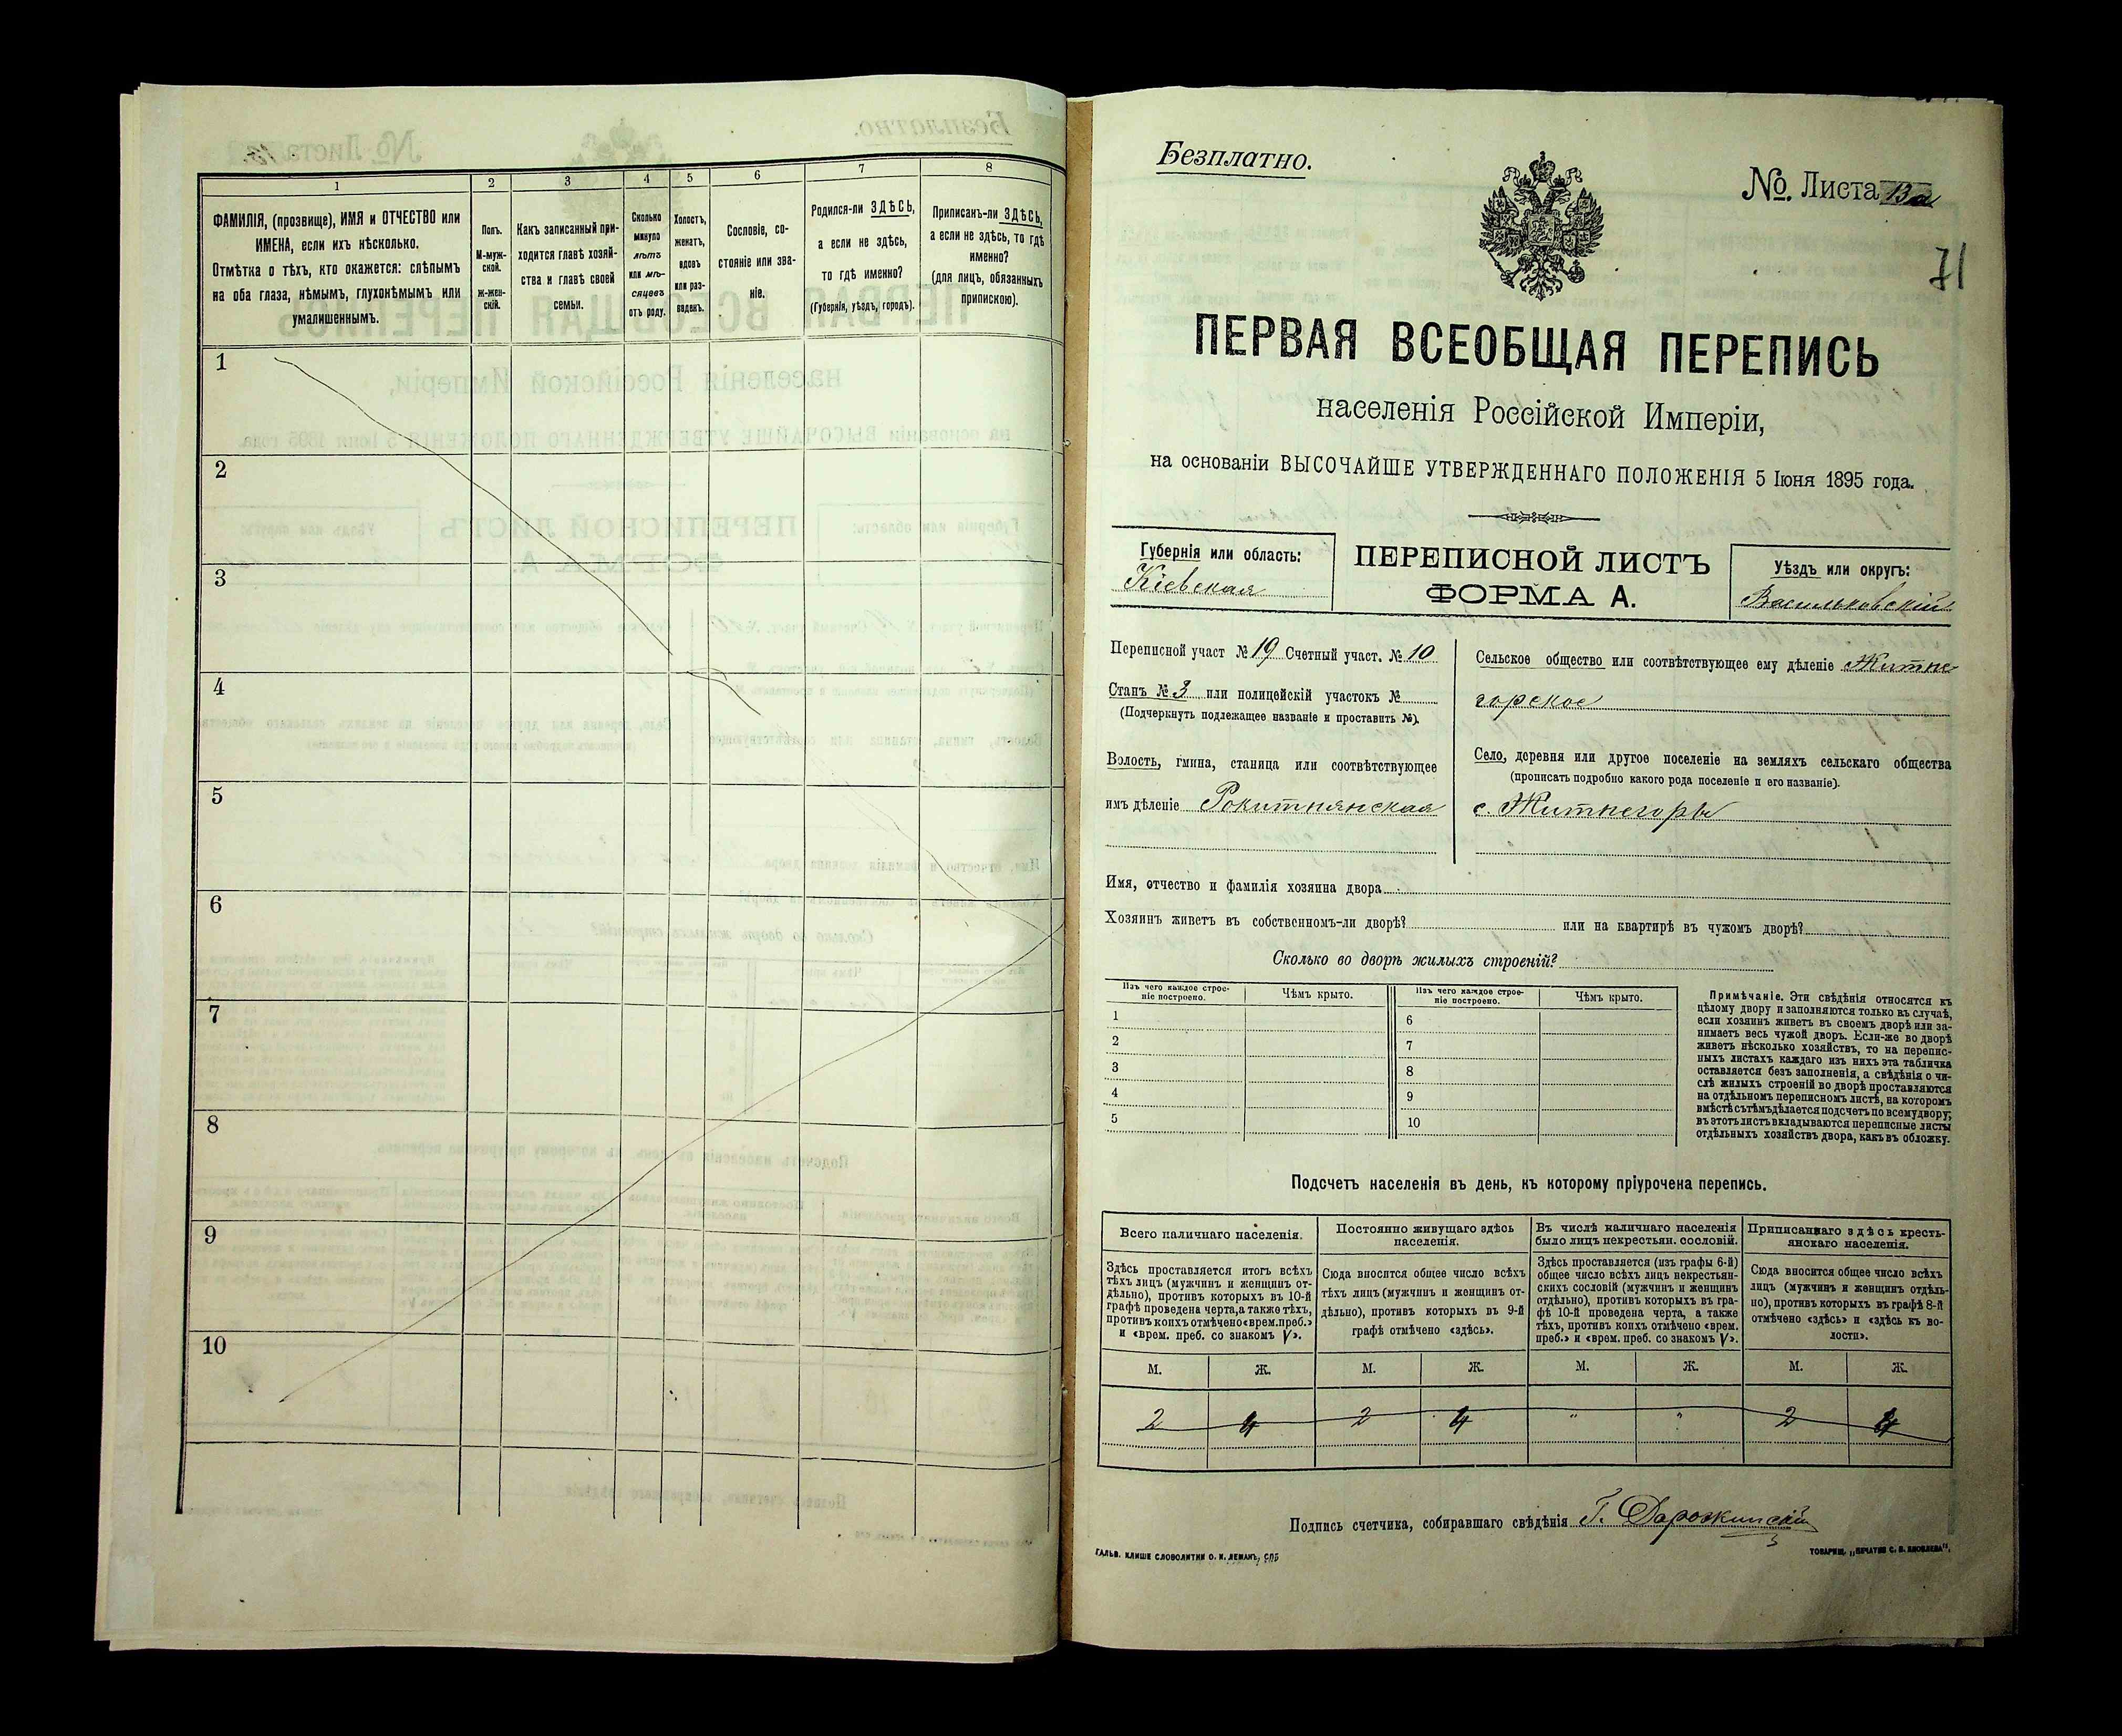 1
2
3
4
5
6
7
8
ФАМИЛІЯ, (прозвище), ИМЯ и ОТЧЕСТВО или
ИМЕНА, если ихъ нѣсколько.
Отмѣтка о тѣхъ, кто окажется: слѣпымъ
на оба глаза, нѣмымъ, глухонѣмымъ или
умалишеннымъ.
Полъ.
М-муж-
ской.
ж-жен-
скій.
Какъ записанный при-
ходится главѣ хозяй-
ства и главѣ своей
семьи.
Сколько
минуло
лѣтъ
или мѣ-
сяцевъ
отъ роду.
Холостъ,
женатъ,
вдовъ
или раз-
веденъ.
Сословіе, со-
стояніе или зва-
ніе.
Родился-ли ЗДѢСЬ,
а если не здѣсь,
то гдѣ именно?
(Губернія, уѣздъ, городъ).
Приписанъ-ли ЗДѢСЬ,
а если не здѣсь, то гдѣ
именно?
(для лицъ, обязанныхъ
припискою).
1
2
3
4
5
6
7
8
9
10
Безплатно.
№ Листа 13а
71
ПЕРВАЯ ВСЕОБЩАЯ ПЕРЕПИСЬ
населенія Россійской Имперіи,
на основаніи ВЫСОЧАЙШЕ УТВЕРЖДЕННАГО ПОЛОЖЕНІЯ 5 Іюня 1895 года.
Губернія или область:
Кіевская
ПЕРЕПИСНОЙ ЛИСТЪ
ФОРМА А.
Уѣздъ или округъ:
Васильковскій
Переписной участ № 19 Счетный участ. № 10
Станъ № 3 или полицейскій участокъ №
(Подчеркнуть подлежащее названіе и проставить №).
Волость, гмина, станица или соотвѣтствующее
имъ дѣленіе Рокитнянская
Сельское общество или соотвѣтствующее ему дѣленіе Житне-
горское
Село, деревня или другое поселеніе на земляхъ сельскаго общества
(прописать подробно какого рода поселеніе и его названіе).
с. Житнегоры
Имя, отчество и фамилія хозяина двора
Хозяинъ живетъ въ собственномъ-ли дворѣ? или на квартирѣ въ чужомъ дворѣ?
Сколько во дворѣ жилыхъ строеній?
Изъ чего каждое строе-
ніе построено.
Чѣмъ крыто.
Изъ чего каждое строе-
ніе построено.
Чѣмъ крыто.
1
2
3
4
5
6
7
8
9
10
Примѣчаніе. Эти свѣдѣнія относятся къ
цѣлому двору и заполняются только въ случаѣ,
если хозяинъ живетъ въ своемъ дворѣ или за-
нимаетъ весь чужой дворъ. Если-же во дворѣ
живетъ нѣсколько хозяйствъ, то на перепис-
ныхъ листахъ каждаго изъ нихъ эта табличка
оставляется безъ заполненія, а свѣдѣнія о чи-
слѣ жилыхъ строеній во дворѣ проставляются
на отдѣльномъ переписномъ листѣ, на которомъ
вмѣстѣ съ тѣмъ дѣлается подсчетъ по всему двору;
въ этотъ листъ вкладываются переписные листы
отдѣльныхъ хозяйствъ двора, какъ въ обложку.
Подсчетъ населенія въ день, къ которому пріурочена перепись.
Всего наличнаго населенія.
Здѣсь проставляется итогъ всѣхъ
тѣхъ лицъ (мужчинъ и женщинъ от-
дѣльно), противъ которыхъ въ 10-й
графѣ проведена черта, а также тѣхъ,
противъ коихъ отмѣчено «врем. преб.»
и «врем. преб. со знакомъ V».
Постоянно живущаго здѣсь
населенія.
Сюда вносится общее число всѣхъ
тѣхъ лицъ (мужчинъ и женщинъ от-
дѣльно), противъ которыхъ въ 9-й
графѣ отмѣчено «здѣсь».
Въ числѣ наличнаго населенія
было лицъ некрестьян. сословій.
Здѣсь проставляется (изъ графы 6-й)
общее число всѣхъ лицъ некрестьян-
скихъ сословій (мужчинъ и женщинъ
отдѣльно), противъ которыхъ въ гра-
фѣ 10-й проведена черта, а также
тѣхъ, противъ коихъ отмѣчено «врем.
преб.» и «врем. преб. со знакомъ V».
Приписаннаго здѣсь кресть-
янскаго населенія.
Сюда вносится общее число всѣхъ
лицъ (мужчинъ и женщинъ отдѣль-
но), противъ которыхъ въ графѣ 8-й
отмѣчено «здѣсь» и «здѣсь къ во-
лости».
М. Ж. М. Ж. М. Ж. М. Ж.
2 4 2 4 " " 2 4
Подпись счетчика, собиравшаго свѣдѣнія Г. Дарожинскій
ГАЛЬВ. КЛИШЕ СЛОВОЛИТНИ О. И. ЛЕМАНЪ, СПБ
ТОВАРИЩ. „ПЕЧАТНЯ С. П. ЯКОВЛЕВА".